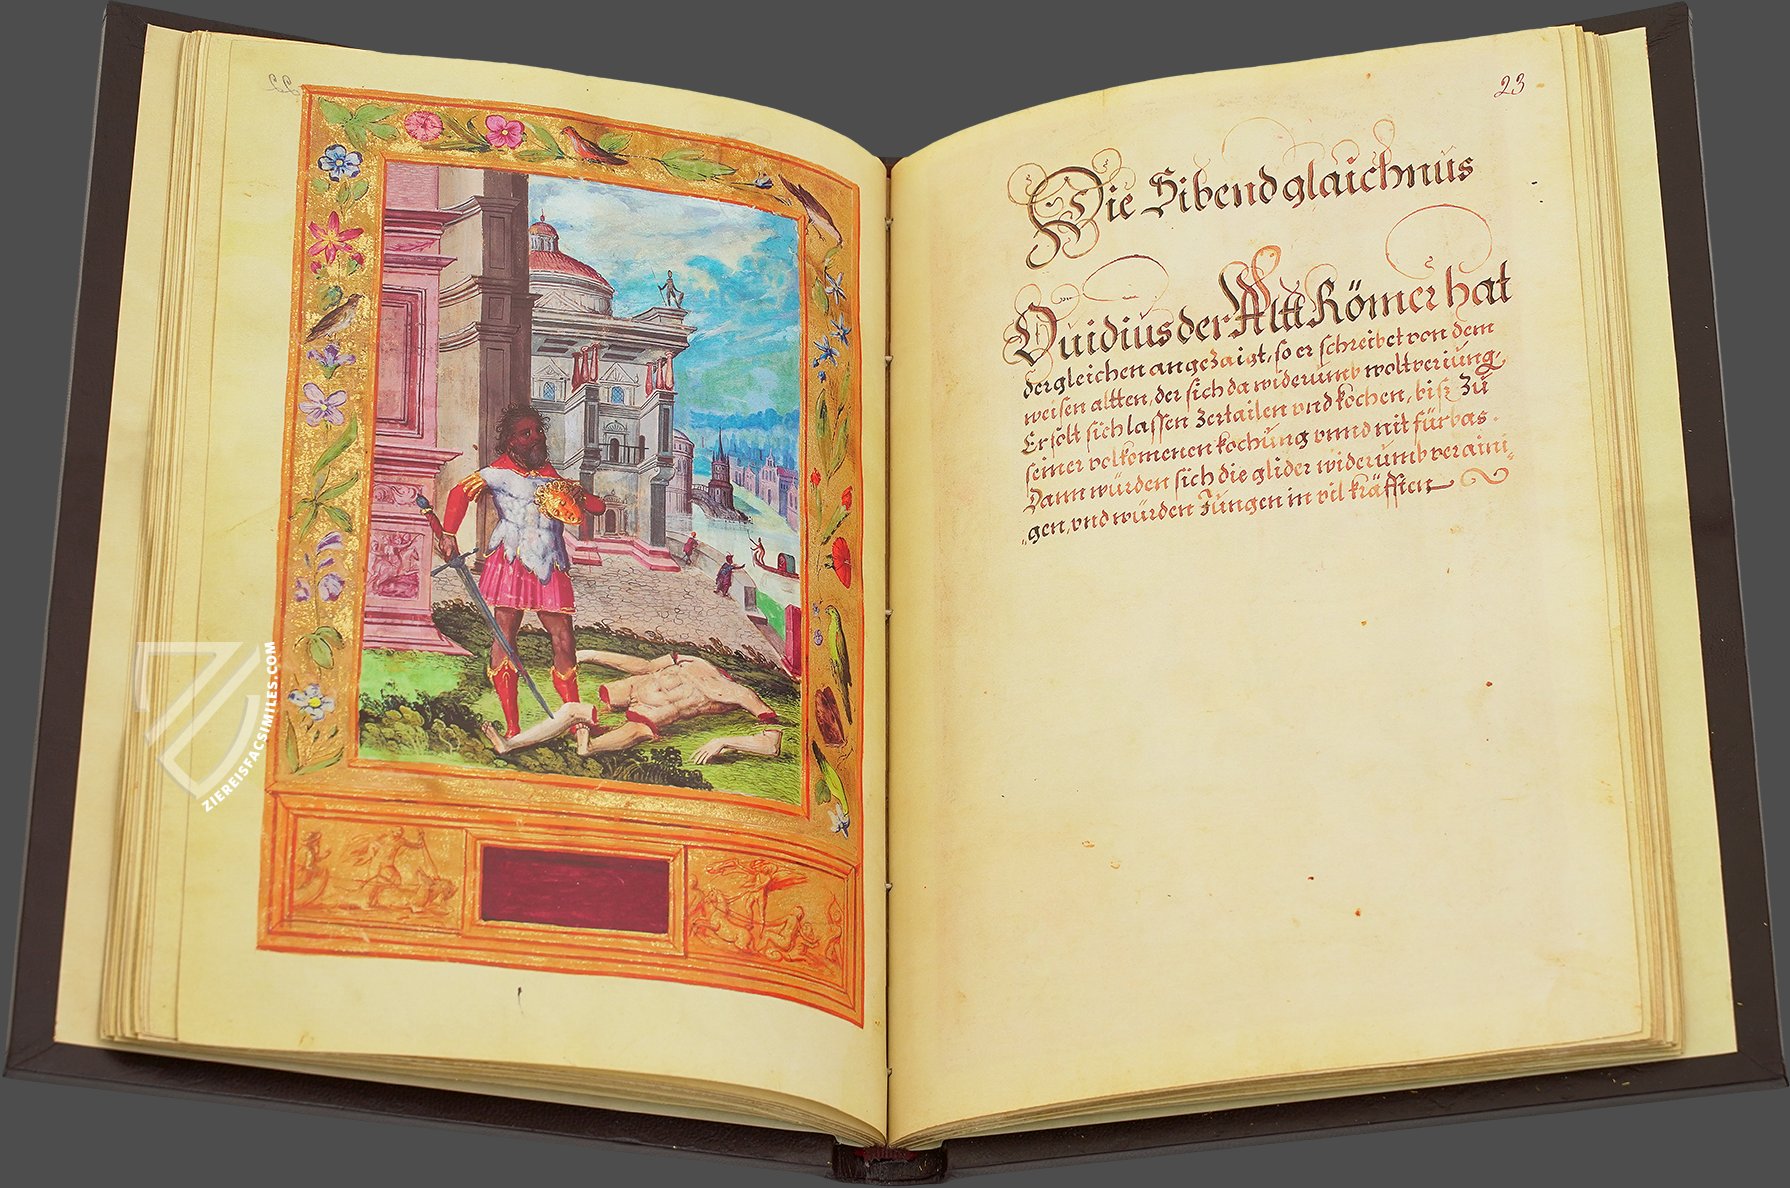 23
Die Sibend glaichnus
Ouidius der Altt Römer hat
dergleichen angezaigt, so er schreibet von dem
weisen altten, der sich da widerumb wolt verjüng,
Er solt sich lassen Zertailen vnd kochen, biß Zü
seiner volkomenen kochung vnnd nit fürbas.
Dann würden sich die glider widerumb veraini¸
¸gen, vnd würden Jüngen in vil kräfften
ZIEREISFACSIMILES.COM